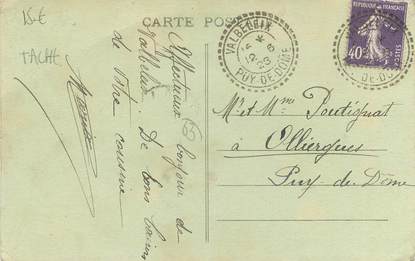 15 €
TACHE
CARTE POS
Affectueux bonjour de
Valbeleix. De bons baisers
de votre cousine
55
VALBELEIX
PUY-DE-DOME
REPUBLIQUE FRANÇAISE
40c
POSTES
DE-DO
Mr et Mme Poutignat
à Olliergues
Puy de Dôme